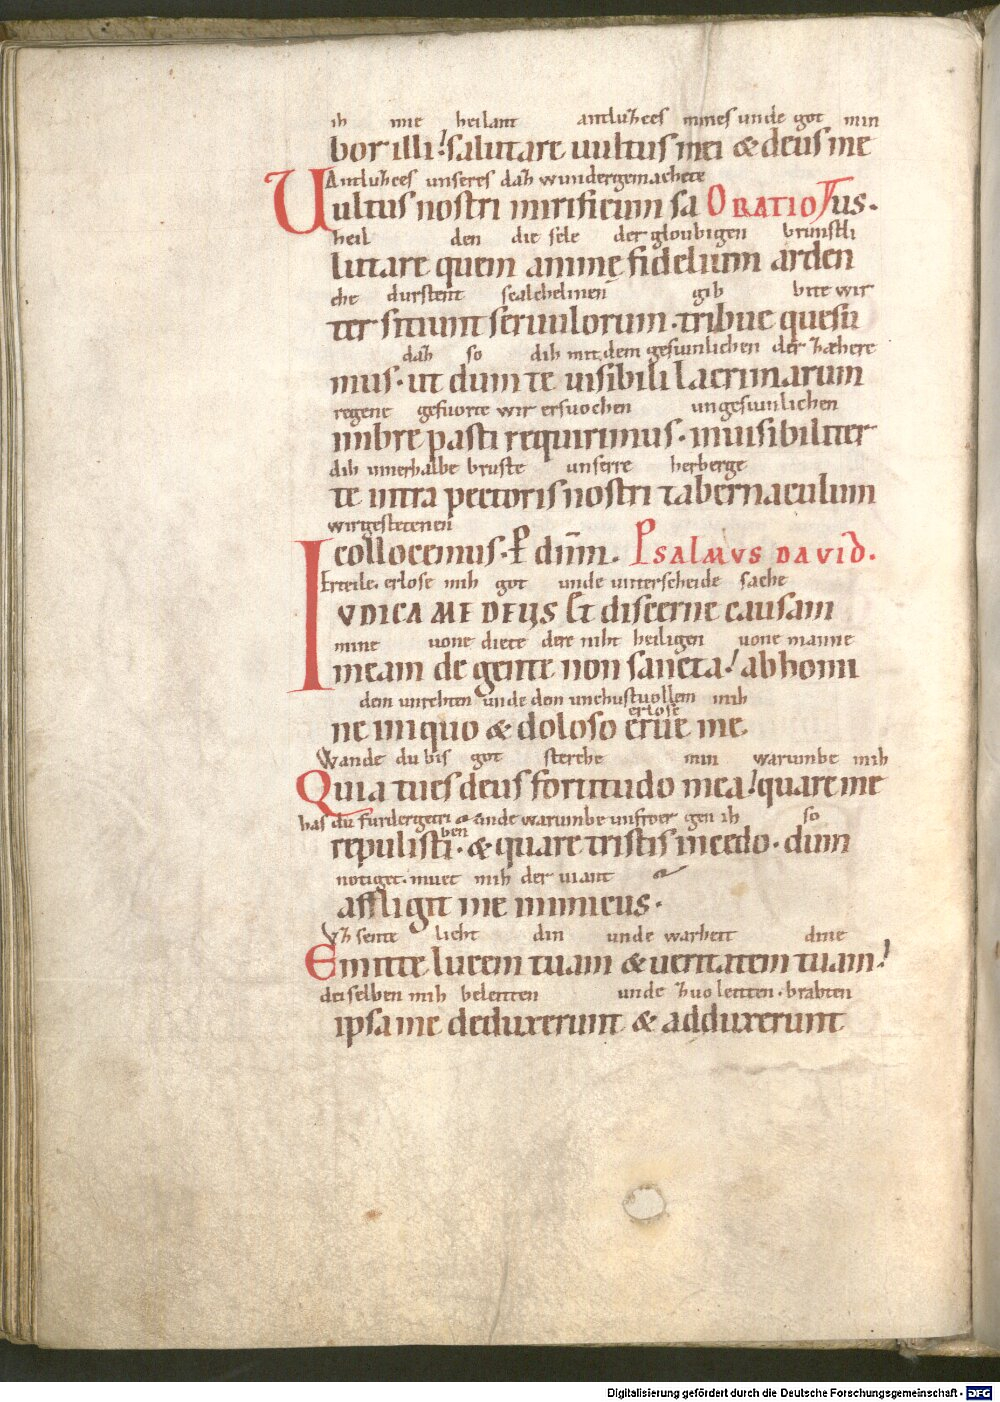 ih mir heilant antluzces mines unde got min
bor illi! salutare uultus mei & deus me
Antluzces unseres daz wundergemachete
Uultus nostri mirificum sa ORATIO us.
heil den die sele der gloubigen brinstli
lutare quem anime fidelium arden
che durstent scalchelinen gib bite wir
ter sitiunt seruulorum. tribue quesu
daz so dih mit dem gesiunlichen der zæhere
mus. ut dum te uisibili lacrimarum
regene gefuorte wir ersuochen ungesiunlichen
imbre pasti requirimus. inuisibiliter
dih innerhalbe bruste unserre herberge
te intra pectoris nostri tabernaculum
wir gestetenen
collocemus. P dnm. PSALMVS DAVID.
Erteile. erlose mih got unde unterscheide sache
IVDICA ME DEUS Et discerne causam
mine uone diete dere niht heiligen uone manne
meam de gente non sancta! ab homi
dem unrehten unde dem unchustuollem mih
erlose
ne iniquo & doloso erue me
Wande du bis got sterche min warumbe mih
Quia tu es deus fortitudo mea! quare me
has du furdergetri unde warumbe unfroer gen ih so
ben
repulisti. & quare tristis incedo. dum
notiget. muet mih der uiant
affligit me inimicus.
Vz sente lieht din unde warheit dine
Emitte lucem tuam & ueritatem tuam!
dei selben mih beleitten unde zuo leitten. brahten
ipsa me deduxerunt & adduxerunt
Digitalisierung gefördert durch die Deutsche Forschungsgemeinschaft - DFG